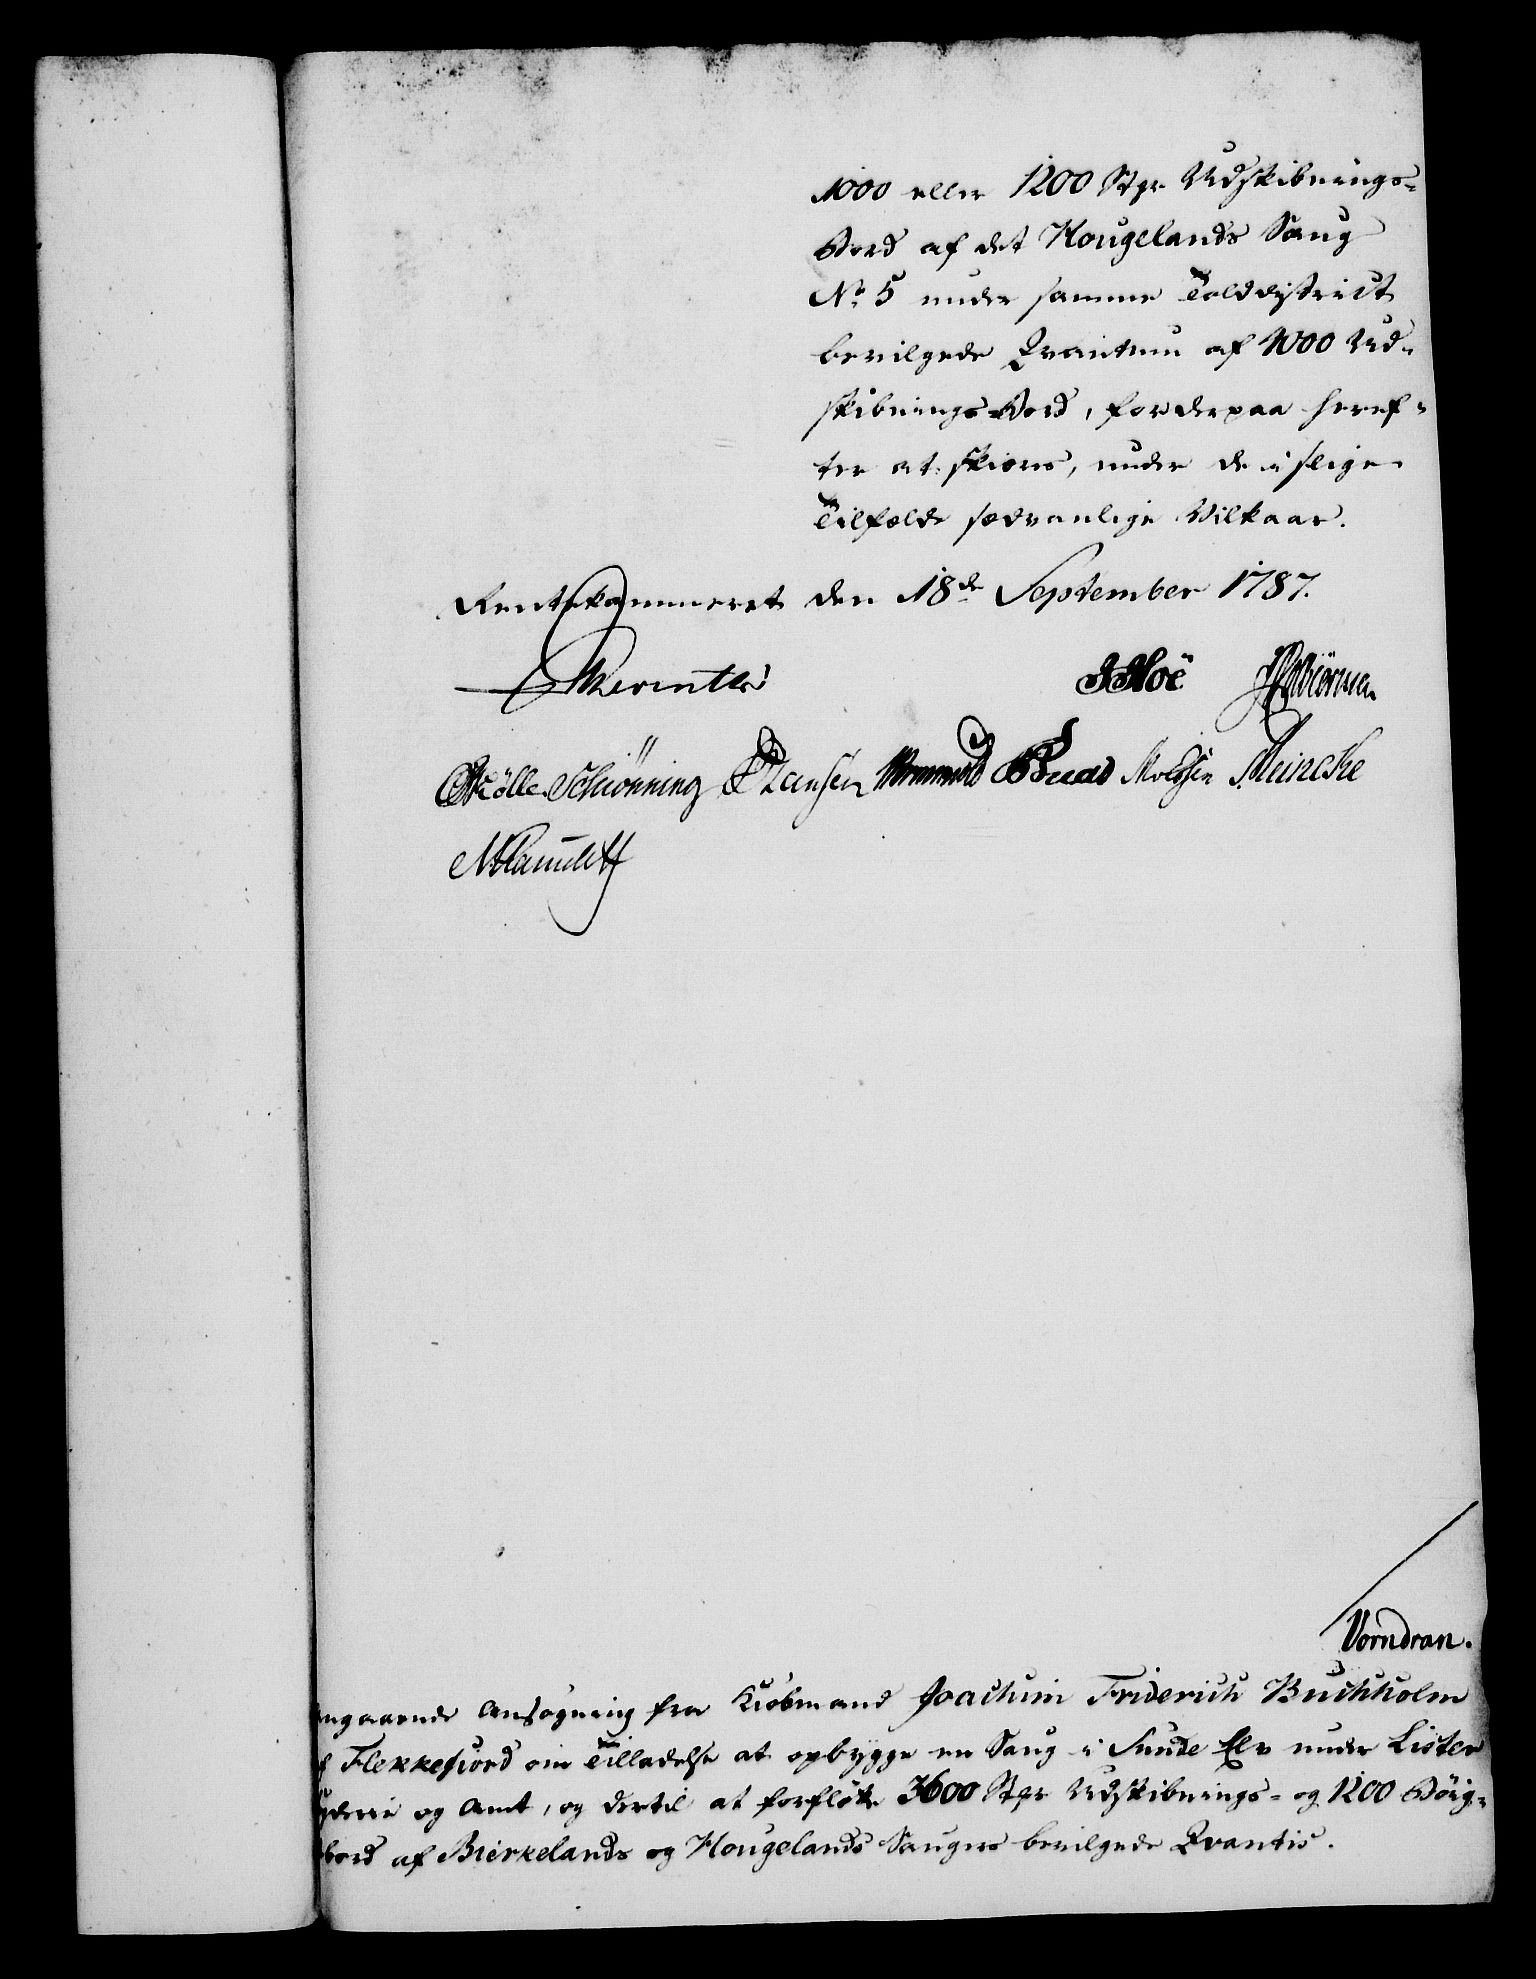 1000 eller 1200 Stpr Udskibnings-
Bord af det Hougelands Saug
No 5 under samme Tolddistrict
bevilgede Qvantum af 4000 Ud-
skibnings Bord, for derpaa heref-
ter at skiæres, under de i slige
Tilfælde sædvanlige Vilkaar.
Rentekammeret den 18de September 1787.
Reventlow
Hoë
Møller Schiönning Hansen Wormskiold Meincke
Vorndran.
angaaende Ansøgning fra Kiøbmand Joachum Friderich Buchholm
af Flekkefiord om Tilladelse at opbygge en Saug i Sunde Elv under Lister
og Amt, og dertil at forfløtte 3600 Stpr Udskibnings- og 1200 Bÿig-
bord af Bierkelands og Hougelands Saugers bevilgede Qvantis.